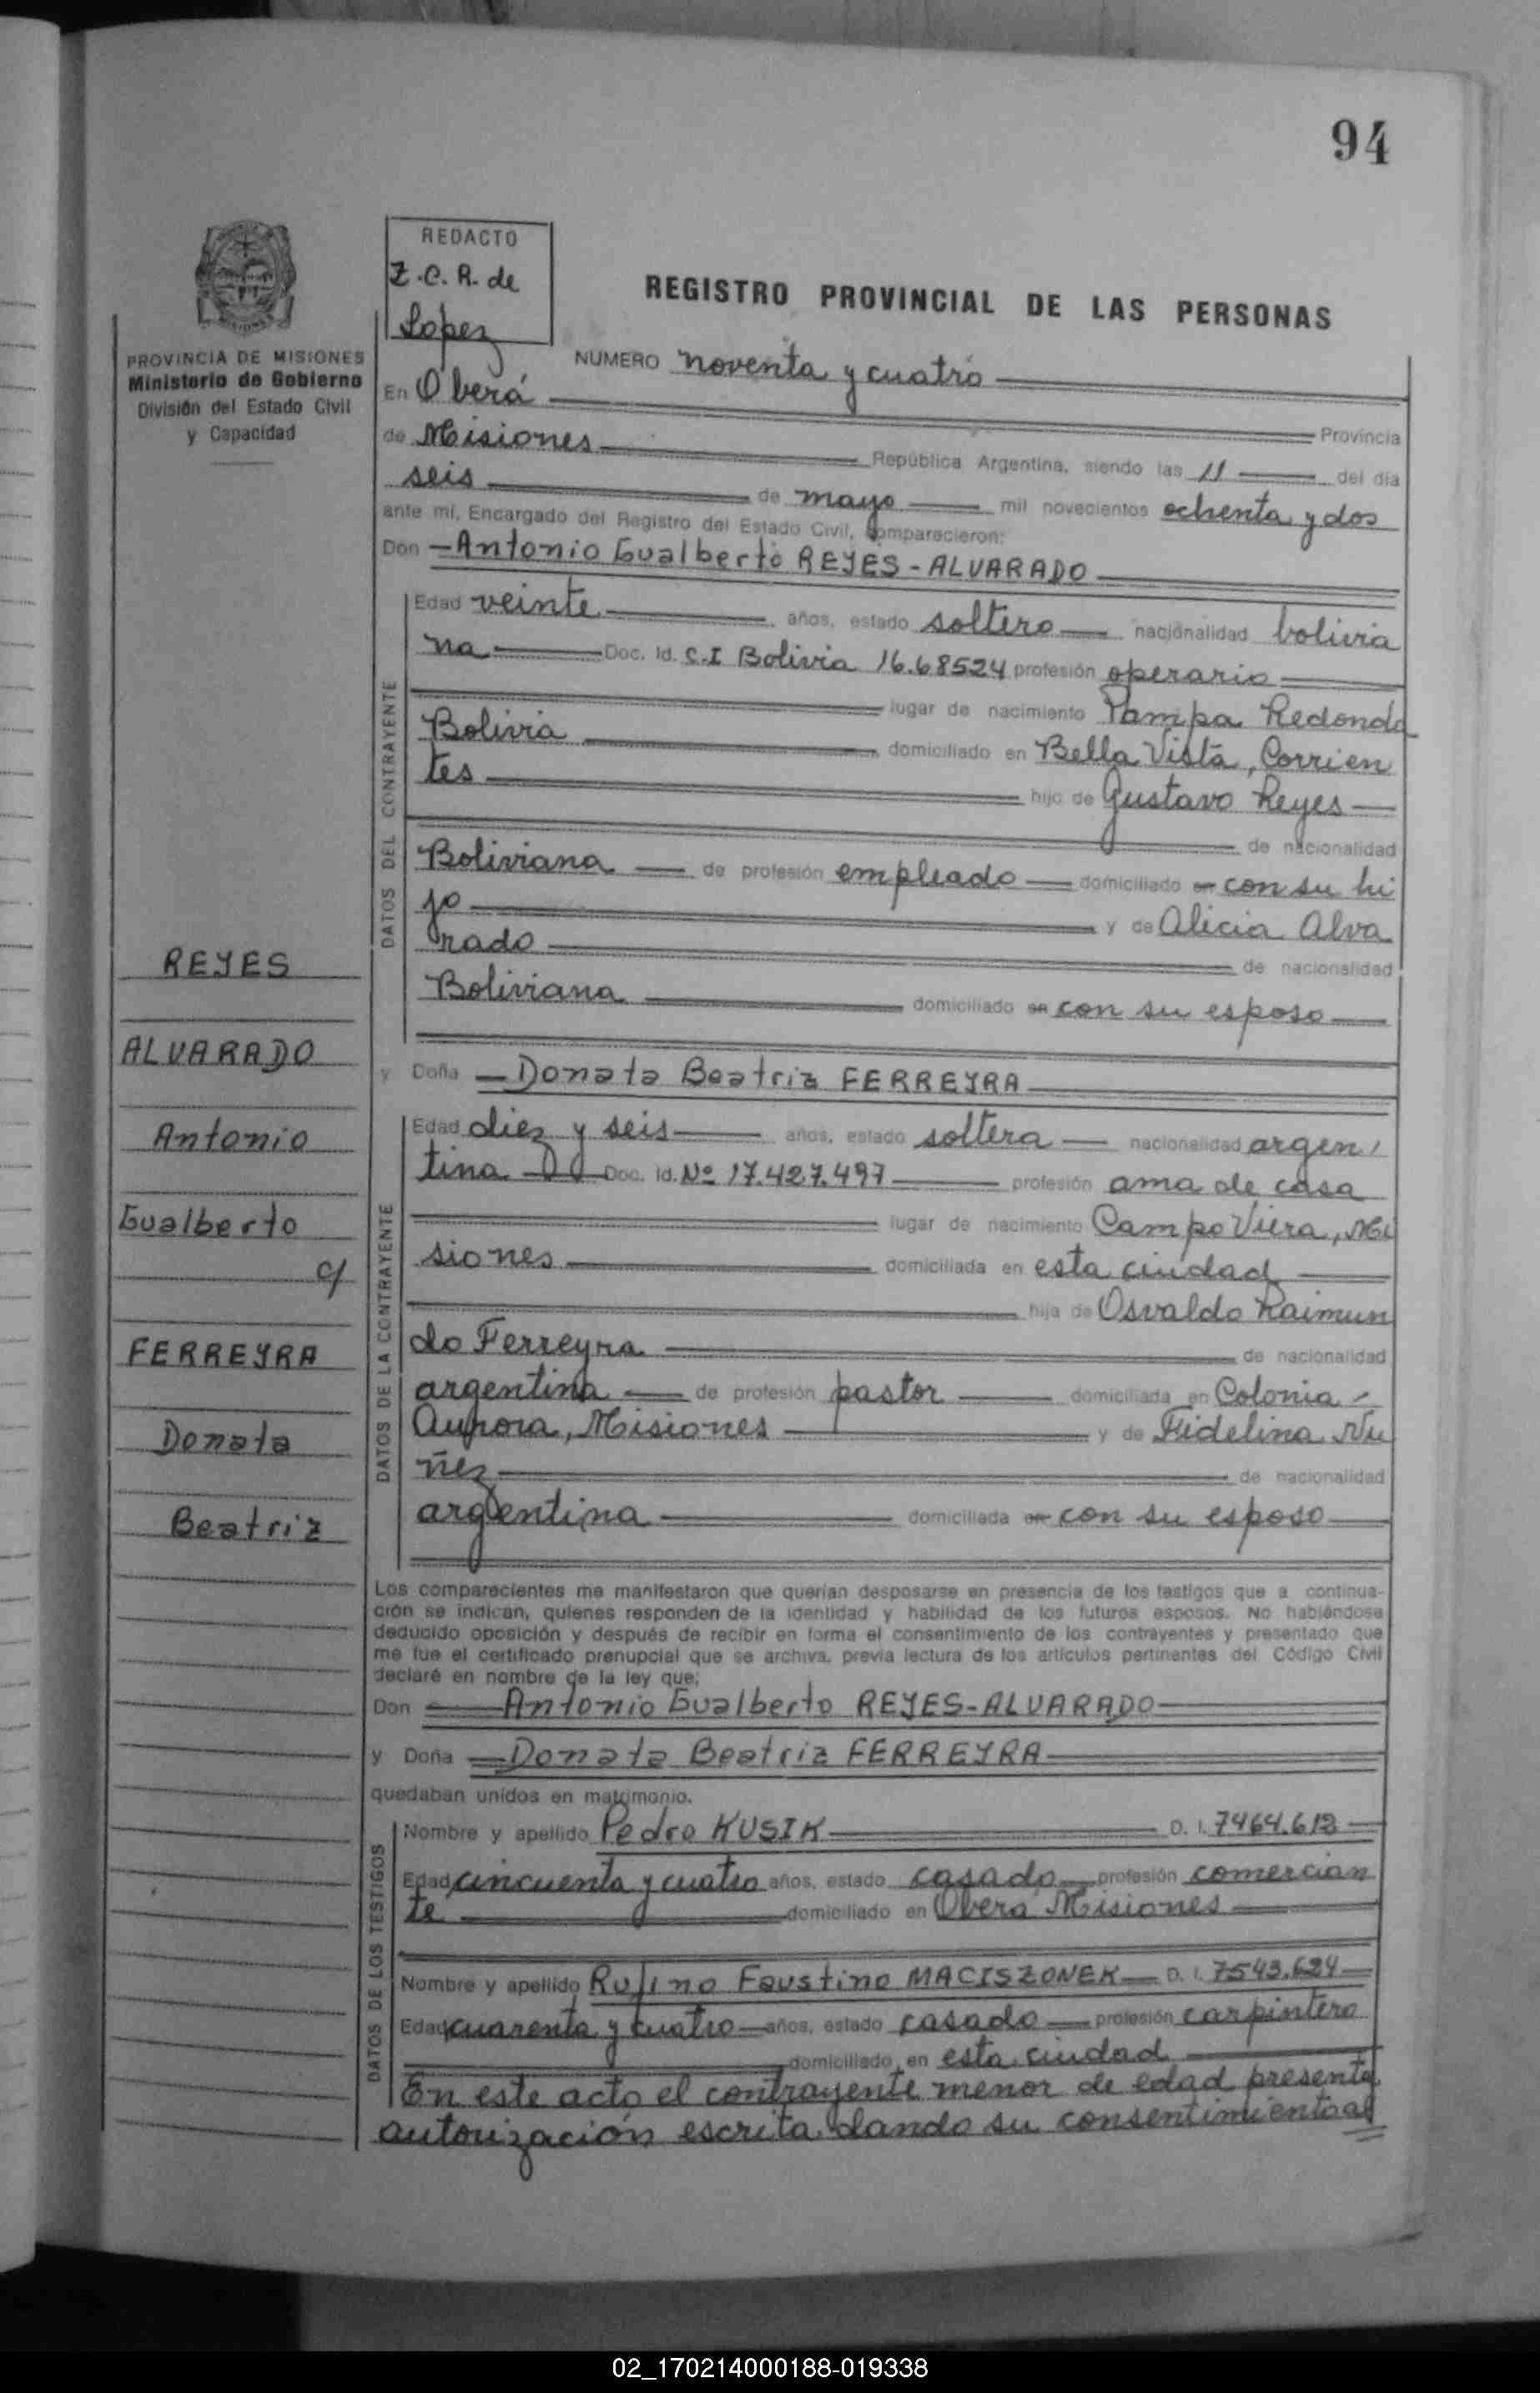 94
REDACTO
Z.C.R. de
Lopez
REGISTRO PROVINCIAL DE LAS PERSONAS
PROVINCIA DE MISIONES
Ministerio de Gobierno
División del Estado Civil
y Capacidad
NUMERO noventa y cuatro
En Oberá
Provincia
de Misiones República Argentina, siendo las 11 del día
seis de mayo mil novecientos ochenta y dos
ante mí, Encargado del Registro del Estado Civil, comparecieron:
Don Antonio Gualberto REYES - ALVARADO
DATOS DEL CONTRAYENTE
Edad veinte años, estado soltero nacionalidad bolivia
na Doc. Id. C.I Bolivia 16.68524 profesión operario
lugar de nacimiento Pampa Redonda
Bolivia domiciliado en Bella Vista, Corrien
tes hijo de Gustavo Reyes
de nacionalidad
Boliviana de profesión empleado domiciliado en con su hi
jo y de Alicia Alva
rado de nacionalidad
Boliviana domiciliado en con su esposo
y Doña Donata Beatriz FERREYRA
DATOS DE LA CONTRAYENTE
Edad diez y seis años, estado soltera nacionalidad argen
tina Doc. Id. Nº 17.427.497 profesión ama de casa
lugar de nacimiento Campo Viera, Mi
siones domiciliada en esta ciudad
hija de Osvaldo Raimun
do Ferreyra de nacionalidad
argentina de profesión pastor domiciliada en Colonia
Aurora, Misiones y de Fidelina Nu
ñez de nacionalidad
argentina domiciliada en con su esposo
REYES
ALVARADO
Antonio
Gualberto
c/
FERREYRA
Donata
Beatriz
Los comparecientes me manifestaron que querían desposarse en presencia de los testigos que a continua-
ción se indican, quienes responden de la identidad y habilidad de los futuros esposos. No habiéndose
deducido oposición y después de recibir en forma el consentimiento de los contrayentes y presentado que
me fue el certificado prenupcial que se archiva, previa lectura de los artículos pertinentes del Código Civil
declaré en nombre de la ley que;
Don Antonio Gualberto REYES-ALVARADO
y Doña Donata Beatriz FERREYRA
quedaban unidos en matrimonio.
DATOS DE LOS TESTIGOS
Nombre y apellido Pedro KUSIK D. I. 7464.612
Edad cincuenta y cuatro años, estado casado profesión comercian
te domiciliado en Oberá Misiones
Nombre y apellido Rufino Faustino MACISZONEK D. I. 7543.624
Edad cuarenta y cuatro años, estado casado profesión carpintero
domiciliado en esta ciudad
En este acto el contrayente menor de edad presenta
autorización escrita dando su consentimiento al
02_170214000188-019338